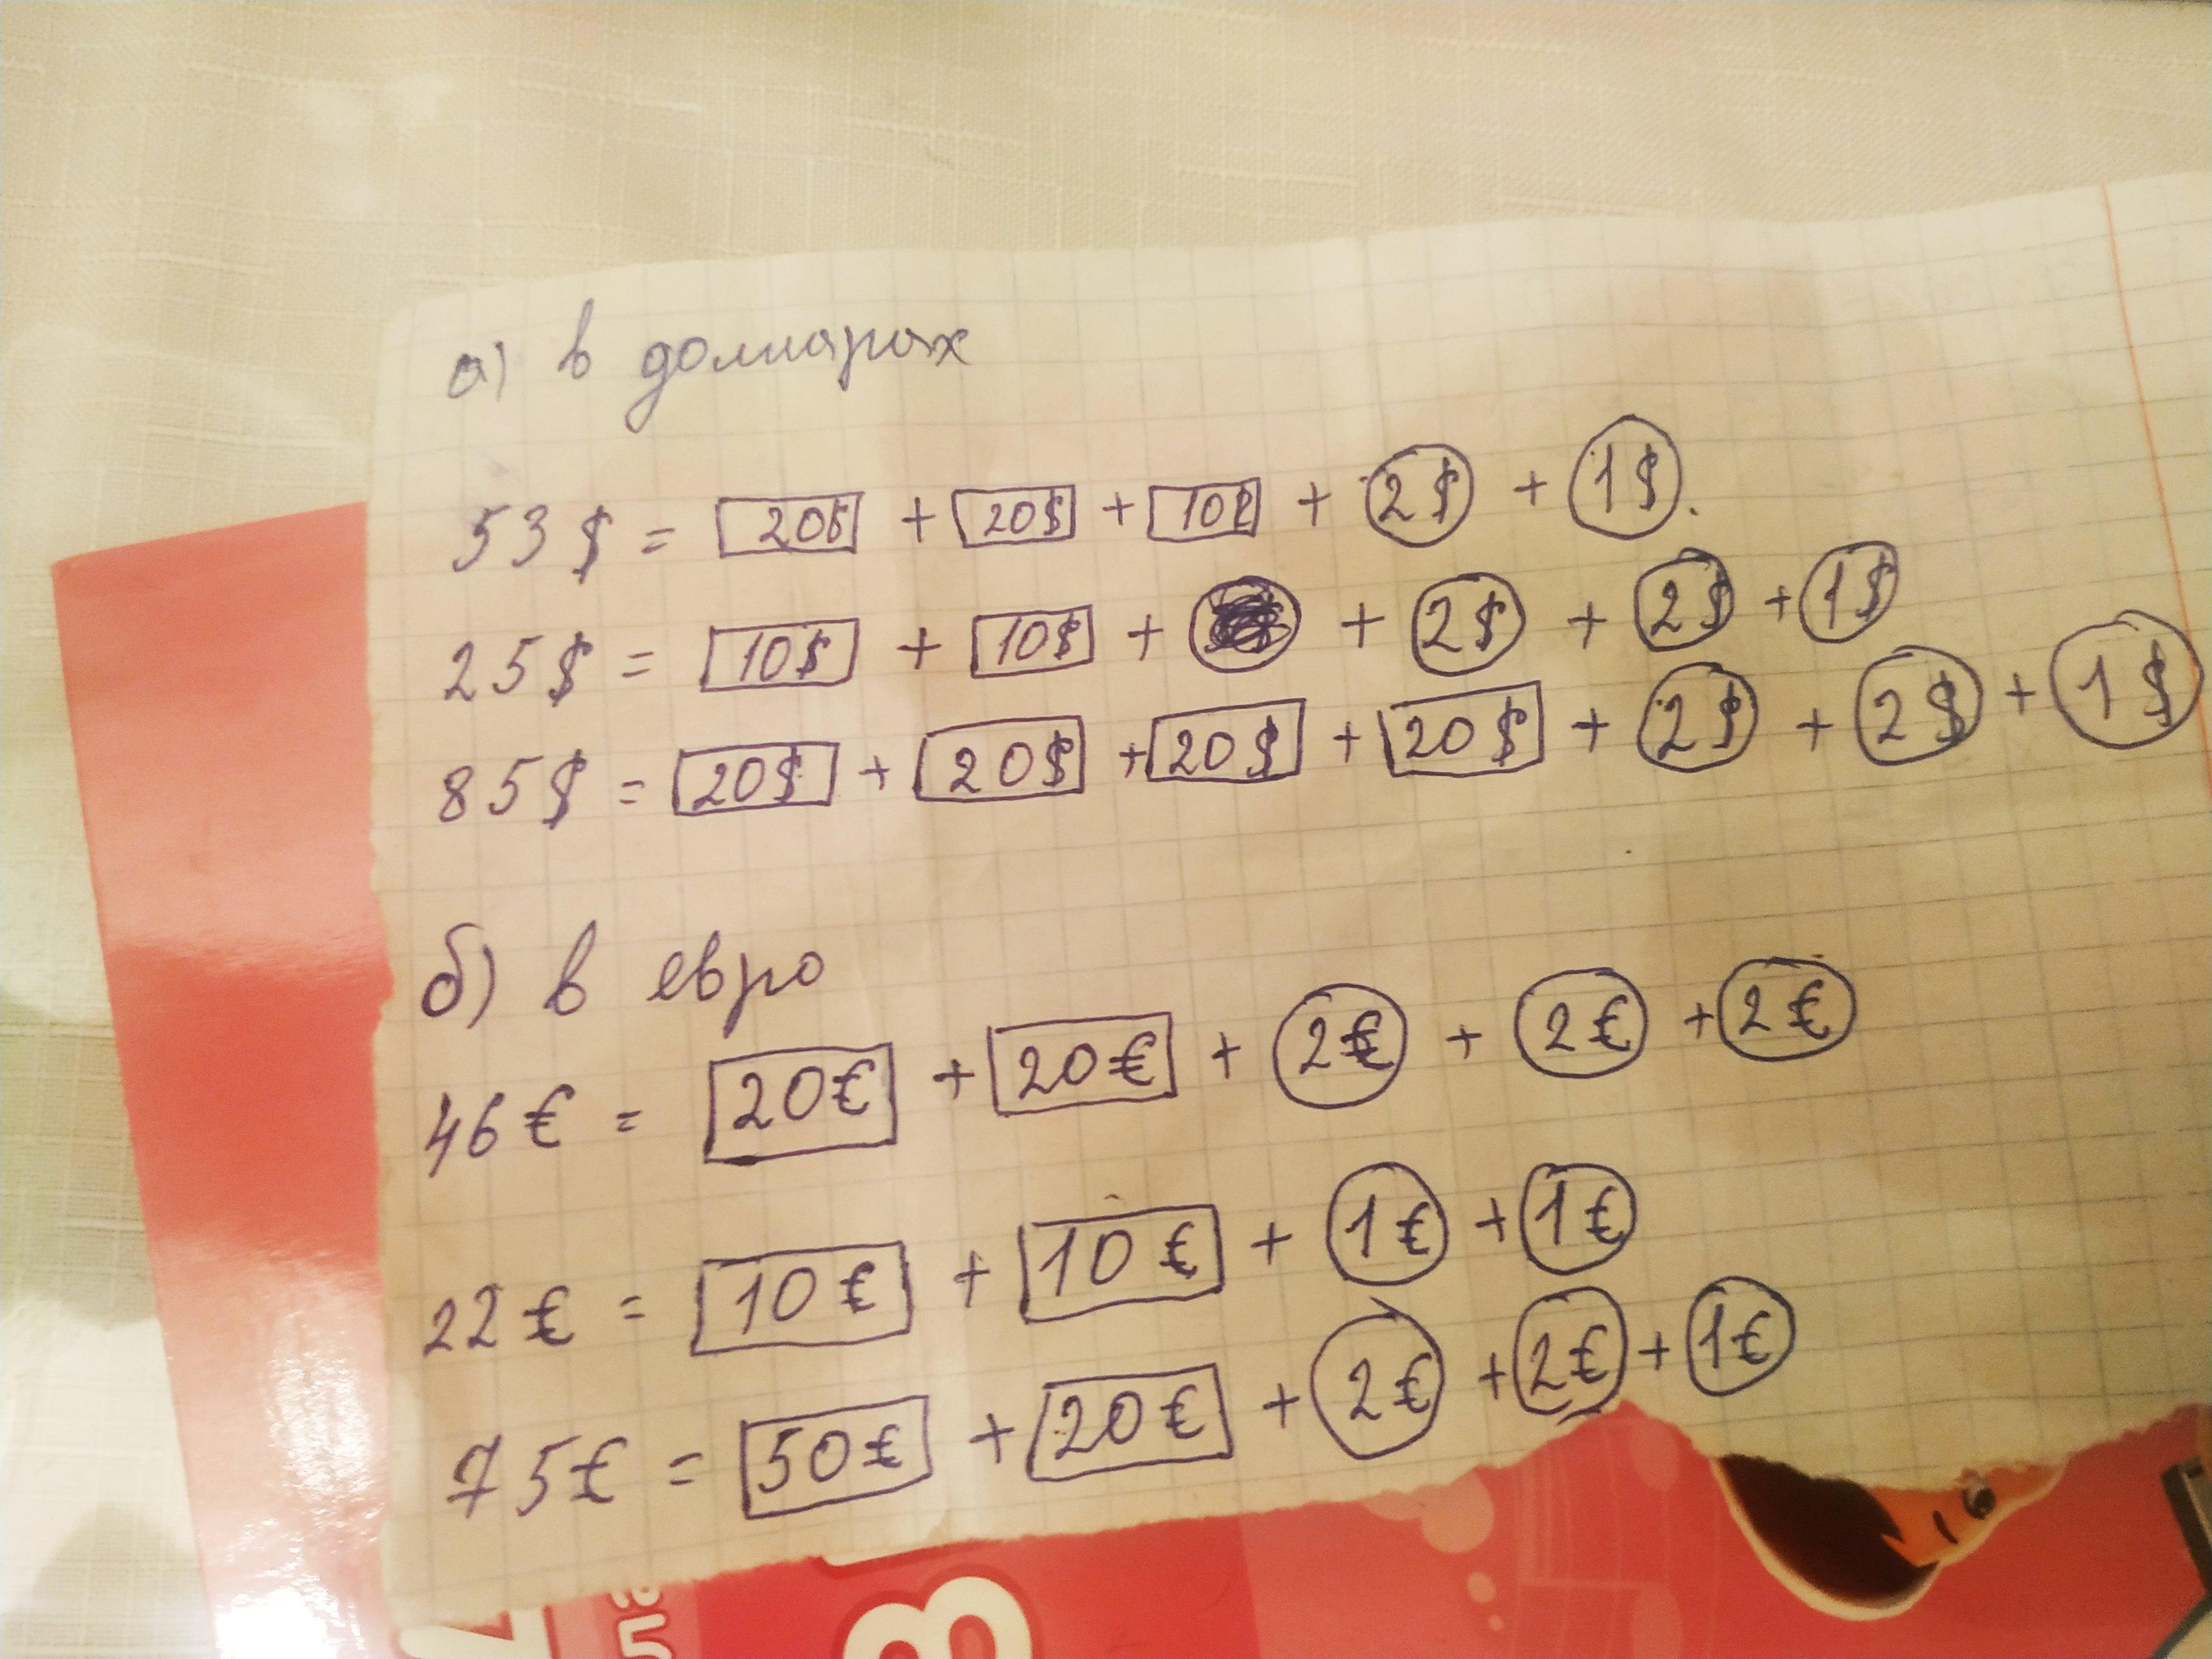 а) в долларах
53 $ = 20$ + 20$ + 10$ + 2$ + 1$.
25$ = 10$ + 10$ + + 2$ + 2$ + 1$
85$ = 20$ + 20$ + 20$ + 20$ + 2$ + 2$ + 1$
б) в евро
46€ = 20€ + 20€ + 2€ + 2€ + 2€
22€ = 10€ + 10€ + 1€ + 1€
75€ = 50€ + 20€ + 2€ + 2€ + 1€